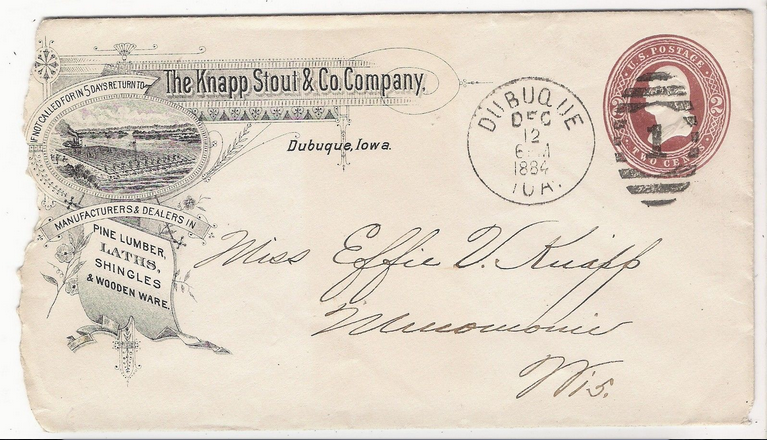 IF NOT CALLED FOR IN 5 DAYS RETURN TO
The Knapp Stout & Co. Company.
Dubuque, Iowa.
MANUFACTURERS & DEALERS IN
PINE LUMBER,
LATHS,
SHINGLES
& WOODEN WARE.
DUBUQUE
DEC
12
1884
IOA.
U.S. POSTAGE
TWO CENTS
2
2
1
Miss Effie V. Knapp
Menomonie
Wis.